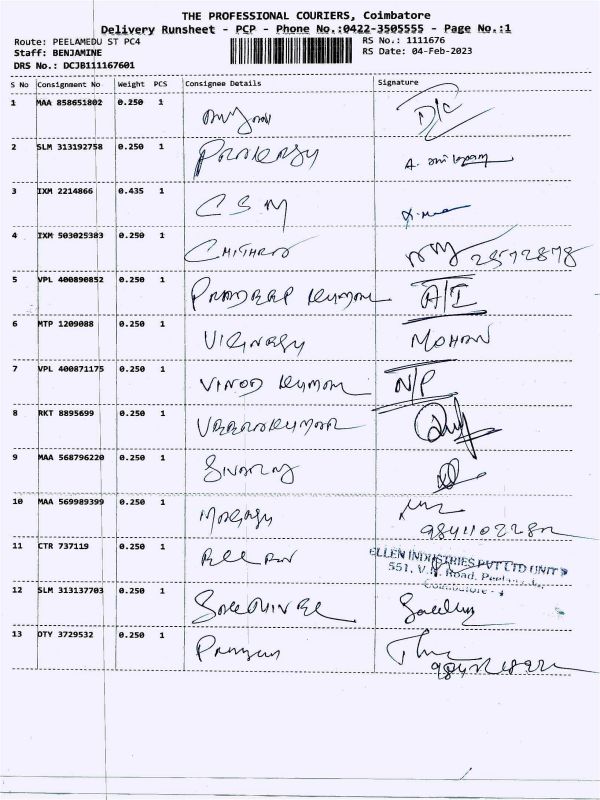 THE PROFESSIONAL COURIERS, Coimbatore
Delivery Runsheet - PCP - Phone No.:0422-3505555 - Page No.:1
Route: PEELAMEDU ST PC4
RS No.: 1111676
Staff: BENJAMINE
RS Date: 04-Feb-2023
DRS No.: DCJB111167601
S No Consignment No Weight PCS Consignee Details Signature
1 MAA 858651802 0.250 1 D/C
2 SLM 313192758 0.250 1
3 IXM 2214866 0.435 1 CSM
4 IXM 503025383 0.250 1 CHITHRA
5 VPL 400890852 0.250 1 PRADEEP KUMAR A/I
6 MTP 1209088 0.250 1 VIGNESH MOHAN
7 VPL 400871175 0.250 1 VINOD KUMAR N/P
8 RKT 8895699 0.250 1 VEERAKUMAR
9 MAA 568796220 0.250 1 SIVARAJ
10 MAA 569989399 0.250 1
11 CTR 737119 0.250 1 ELLEN
ELLEN INDUSTRIES PVT LTD UNIT
551, V.K. Road,
Coimbatore - 4
12 SLM 313137703 0.250 1
13 OTY 3729532 0.250 1